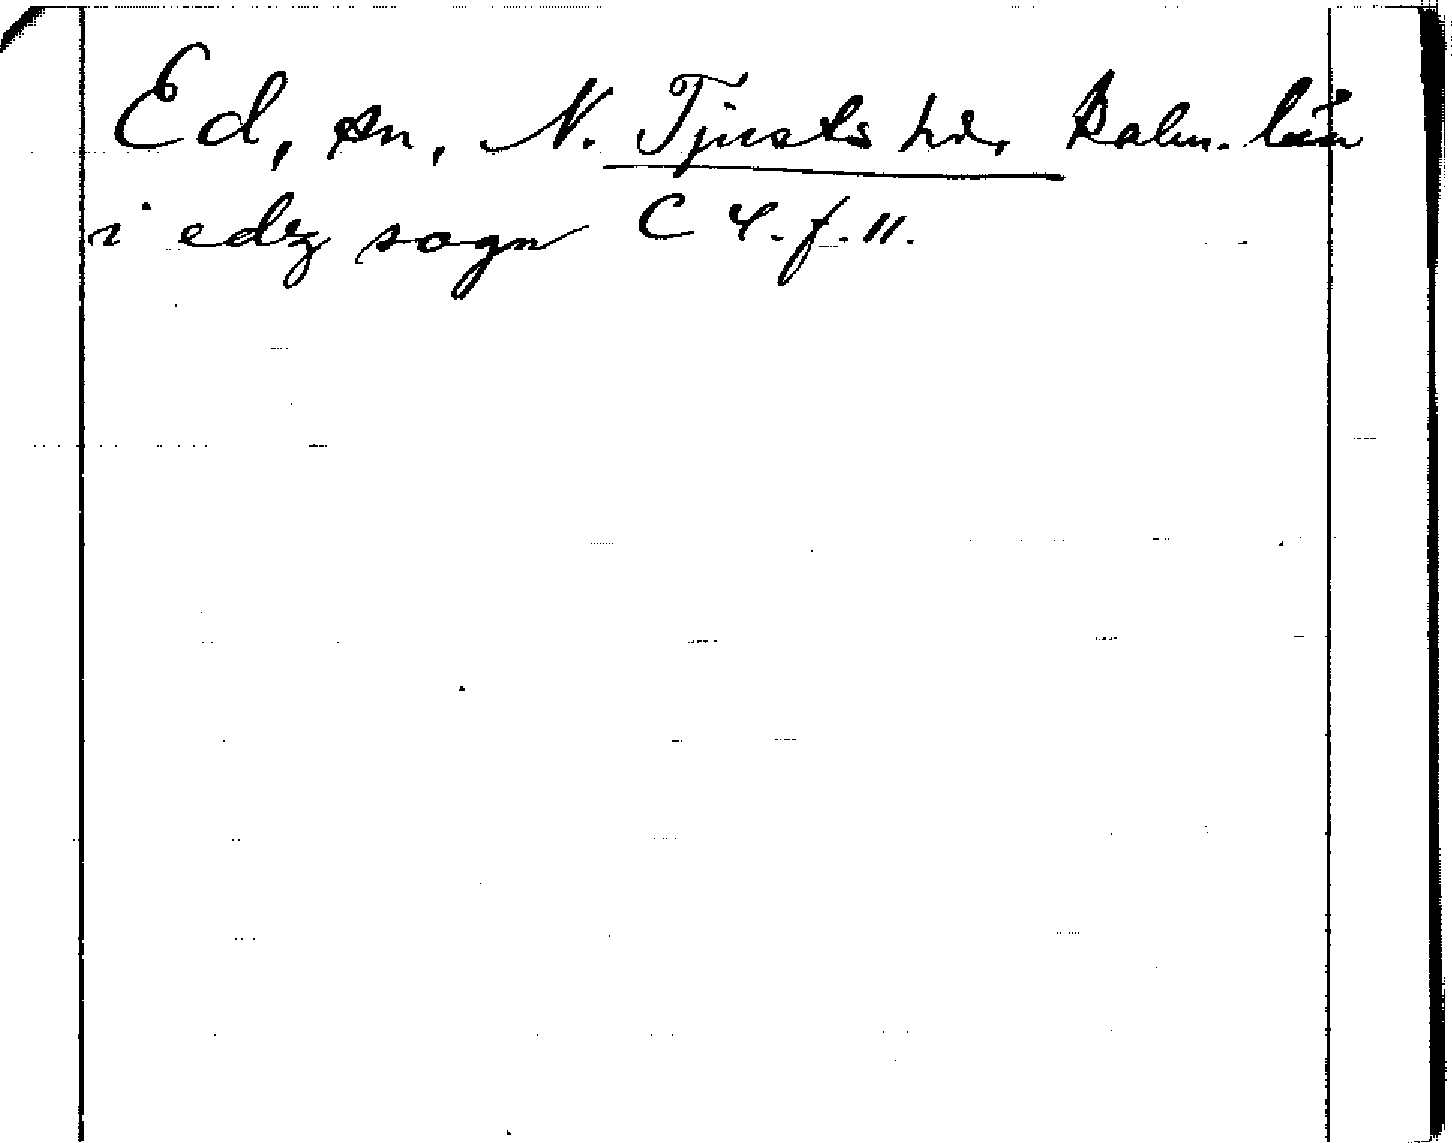 Ed, sn, N. Tjusts hd, Kalm. län
i edz sogn C 4. f. 11.